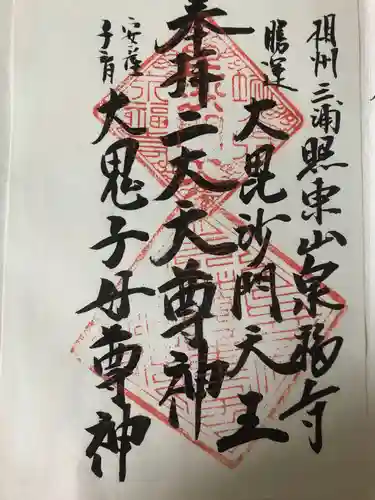 相州三浦照東山泉福寺
勝運
大毘沙門天王
奉拝二大天尊神
安産
子育
大鬼子母尊神